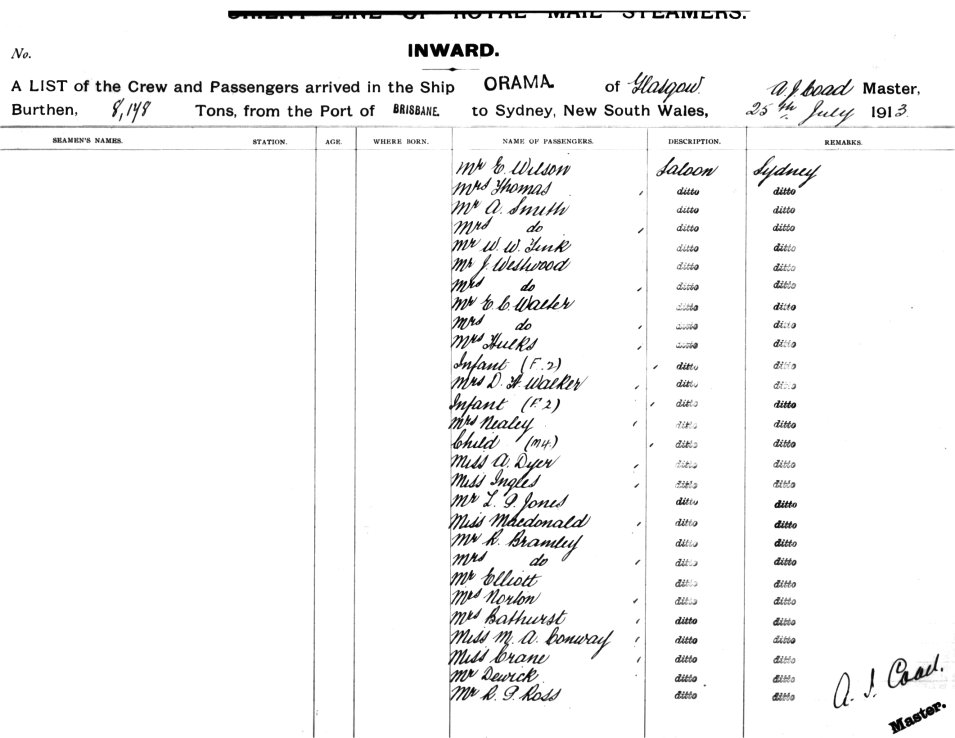 ORIENT LINE OF ROYAL MAIL STEAMERS.
No.
INWARD.
A LIST of the Crew and Passengers arrived in the Ship ORAMA. of Glasgow A J Coad Master,
Burthen, 8,178 Tons, from the Port of BRISBANE. to Sydney, New South Wales, 25th July 1913.
SEAMEN'S NAMES. STATION. AGE. WHERE BORN. NAME OF PASSENGERS. DESCRIPTION. REMARKS.
Mr E. Wilson Saloon Sydney
Mrs Thomas ditto ditto
Mr A. Smith ditto ditto
Mrs do ditto ditto
Mr W. W. Fink ditto ditto
Mr J. Westwood ditto ditto
Mrs do ditto ditto
Mr E. C. Walter ditto ditto
Mrs do ditto ditto
Mrs Hulks ditto ditto
Infant (F. 2) ditto ditto
Mrs D. H. Walker ditto ditto
Infant (F 2) ditto ditto
Mrs Nealey ditto ditto
Child (M 4.) ditto ditto
Miss A. Dyer ditto ditto
Miss Ingles ditto ditto
Mr L. P. Jones ditto ditto
Miss Macdonald ditto ditto
Mr R. Bramley ditto ditto
Mrs do ditto ditto
Mr Elliott ditto ditto
Mrs Norton ditto ditto
Mrs Bathurst ditto ditto
Miss M. A. Conway ditto ditto
Miss Crane ditto ditto
Mr Dewick ditto ditto
Mr R. P. Ross ditto ditto
A. J. Coad.
Master.